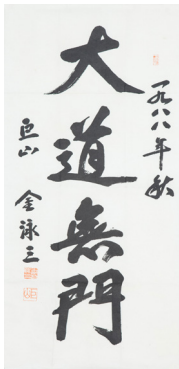 一九八八年秋
大道無門
巨山
金泳三